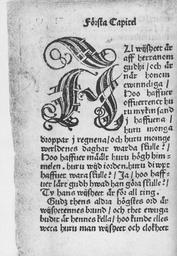 Första Capitel
All wijsheet är
aff herranom
gudhi / och är
når honom
ewinneliga /
Hoo haffuer
offuerrent hu
ru mykin sand
i haffuena /
huru monga
droppar i regnena / och huru monge
werldenes daghar warda skulle?
Hoo haffuer målt huru högh him=
melen / huru wijd iorden / huru diwpt
haffuet wara skulle? Ja / hoo haff=
uer lärt gudh hwad han göra skulle?
Ty hans wijsheet är för all ting.
Gudz thens aldra högstes ord är
wijsheetennes brund / och thet ewiga
budit är hennes kella / hoo kunde elles
weta huru man wijsheet och clokheet